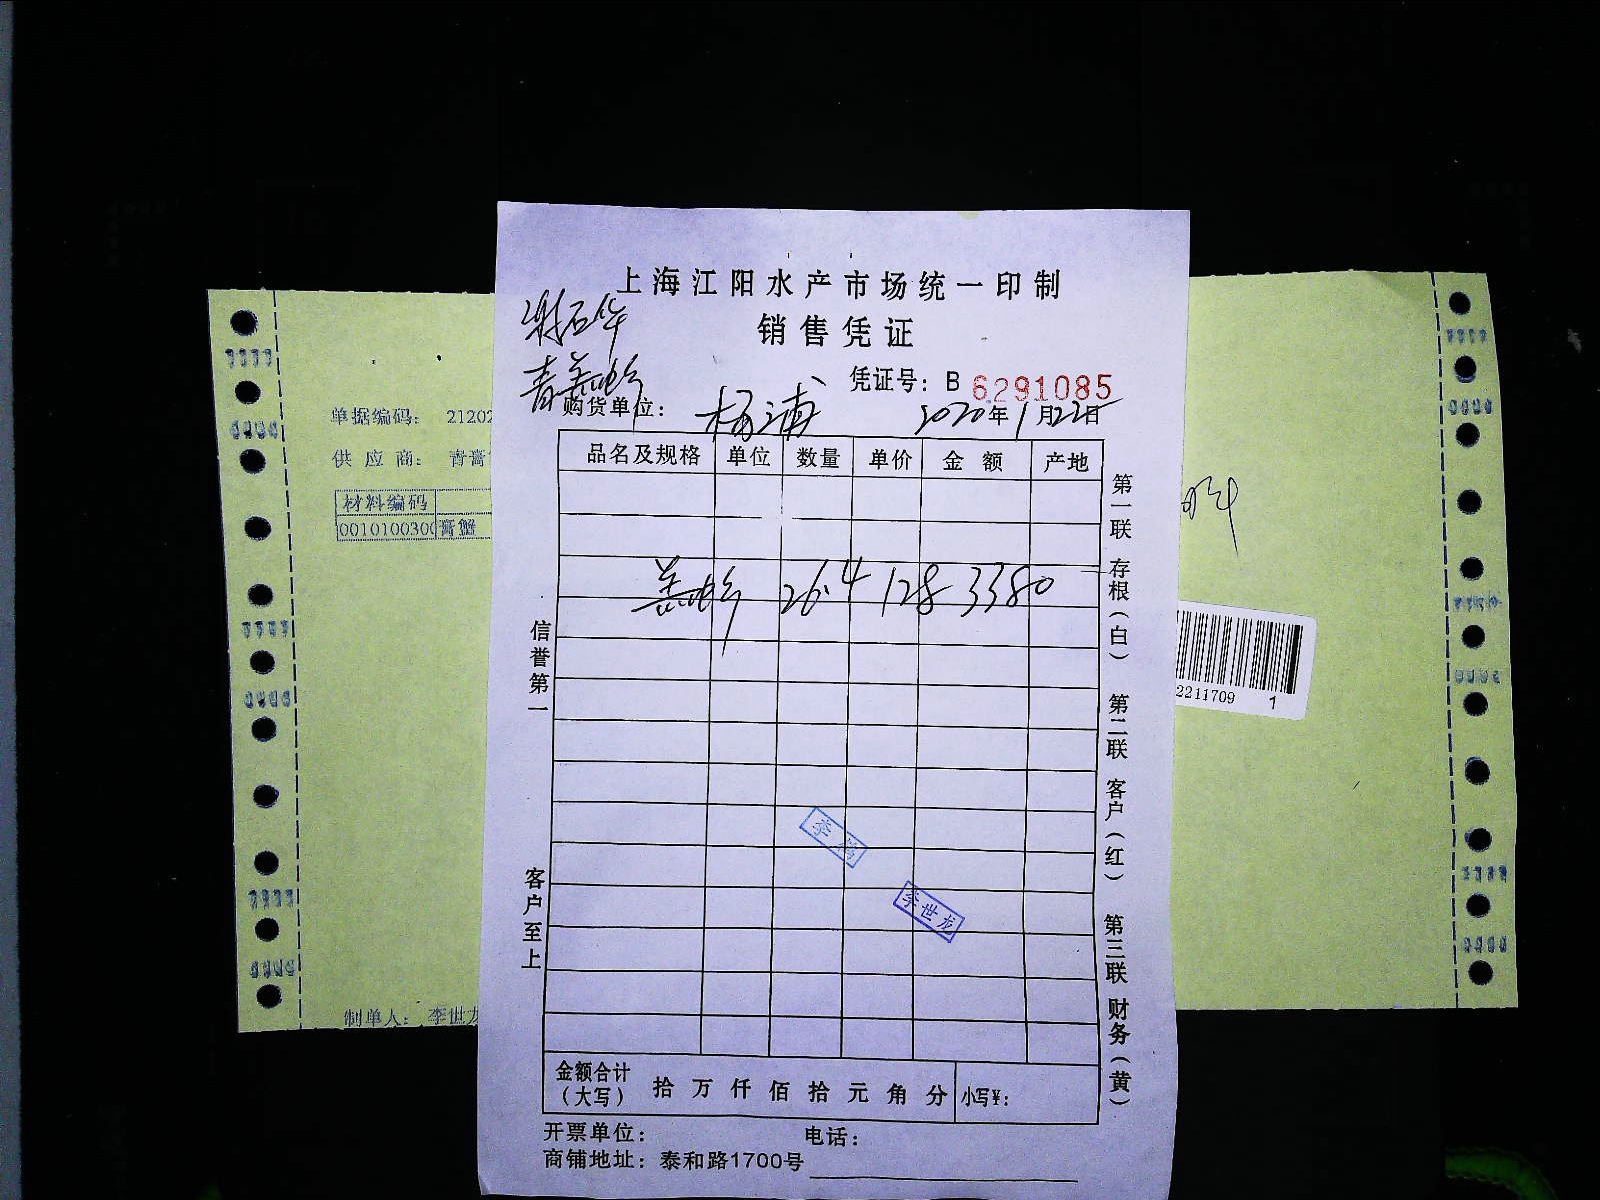 上海江阳水产市场统一印制
销售凭证
凭证号：B 6291085
购货单位： 杨浦 2020年1月22日
品名及规格 单位 数量 单价 金额 产地
26.4 128 3380
信誉第一
客户至上
第一联 存根（白） 第二联 客户（红） 第三联 财务（黄）
李世龙
金额合计（大写） 拾 万 仟 佰 拾 元 角 分 小写¥：
开票单位： 电话：
商铺地址：泰和路1700号
单据编码： 21202
供应商： 青膏
材料编码
0010100300 膏蟹
制单人： 李世龙
2211709 1